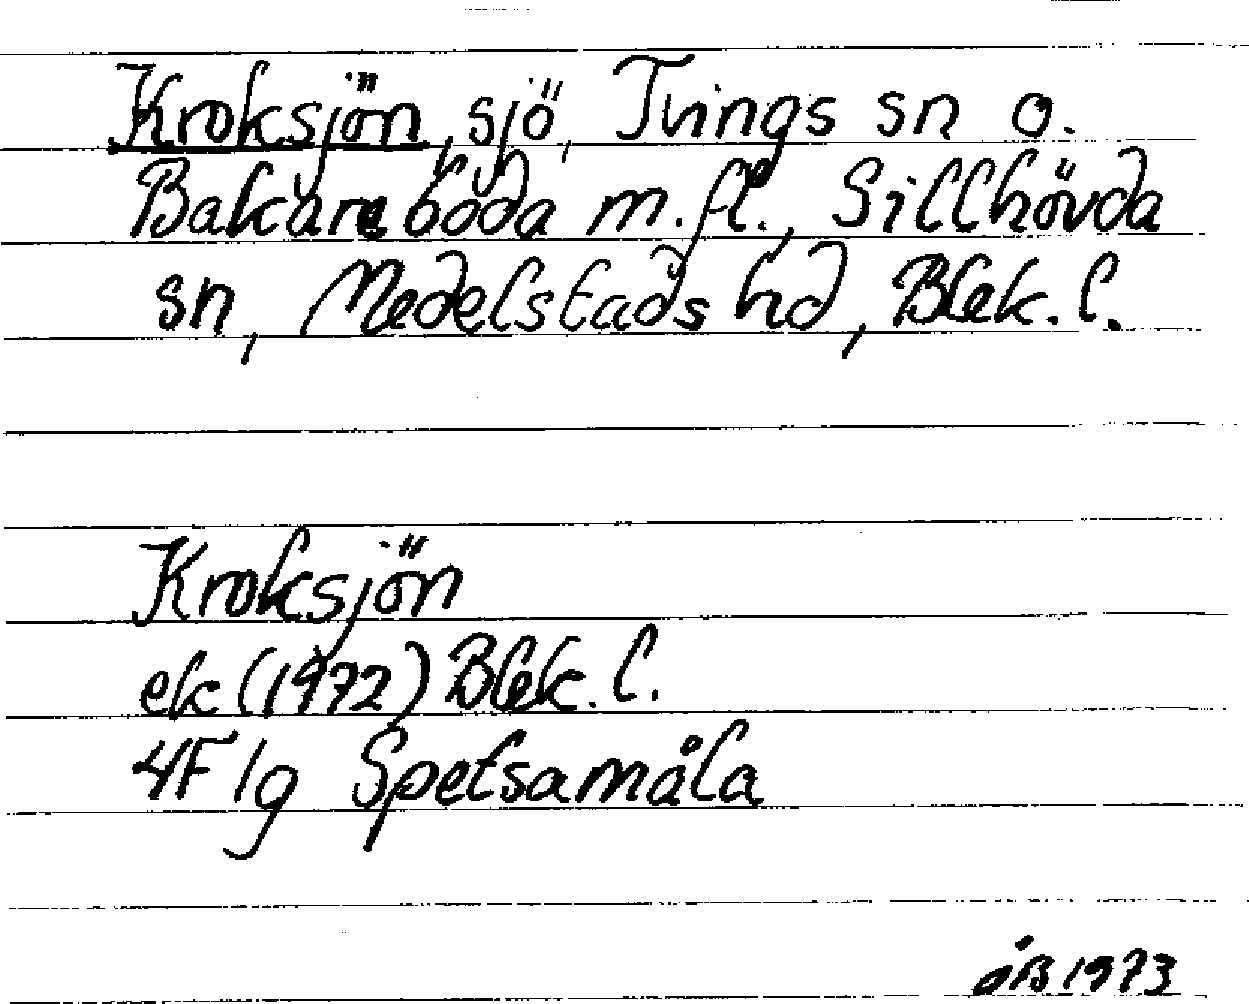 Kroksjön, sjö, Tvings sn o.
Bakareboda m.fl., Sillhövda
sn, Medelstads hd, Blek. l.
Kroksjön
ek (1972) Blek. l.
4F 1g Spetsamåla
åB 1973